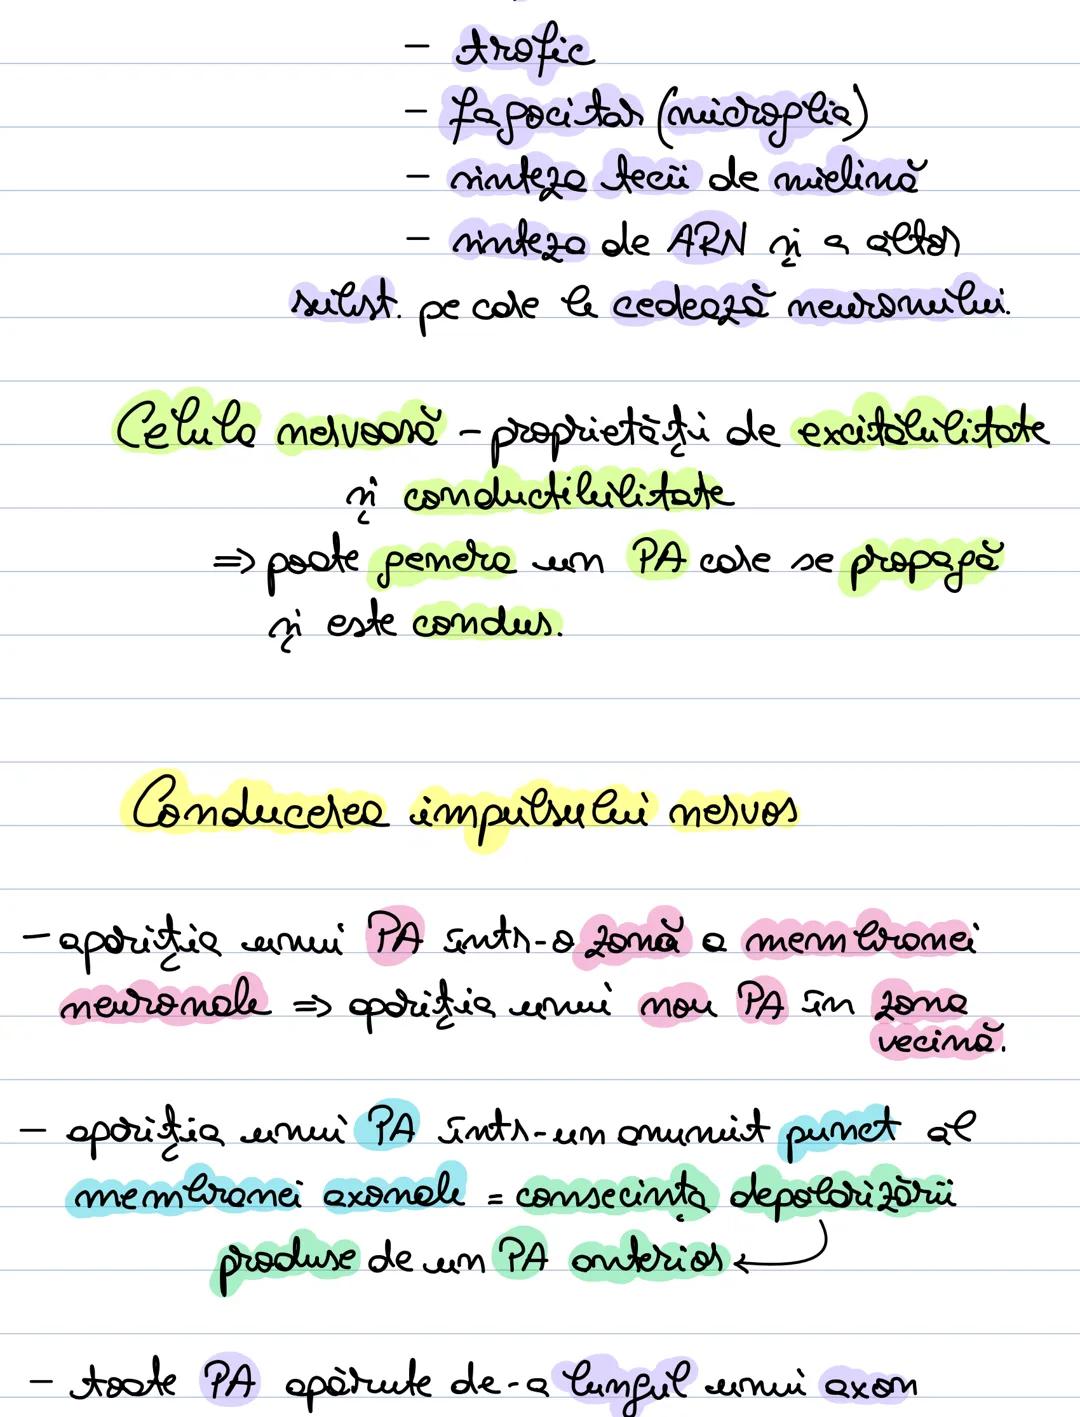 - trofic
- fagocitar (microglia)
- sinteza tecii de mielină
- sinteza de ARN și a altor
subst. pe care le cedează neuronului.
Celula nervoasă - proprietăți de excitabilitate
și conductibilitate
=> poate genera un PA care se propagă
și este condus.
Conducerea impulsului nervos
- apariția unui PA într-o zonă a membranei
neuronale => apariția unui nou PA în zona
vecină.
- apariția unui PA într-un anumit punct al
membranei axonale = consecința depolarizării
produse de un PA anterior
- toate PA apărute de-a lungul unui axon